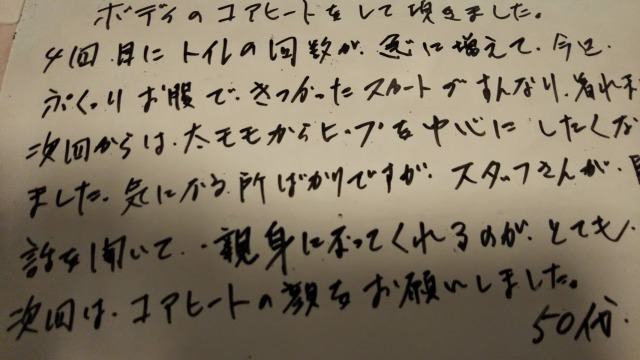 ボディのコアヒートをして頂きました。
4回目にトイレの回数が、急に増えて、今迄
ぷっくりお腹で、きつかったスカートがすんなり、着れま
次回からは、太モモからヒップを中心にしたくな
ました。気になる所ばかりですが、スタッフさんが、
話を聞いて、親身になってくれるのが、とても、
次回は、コアヒートの顔をお願いしました。
50代、